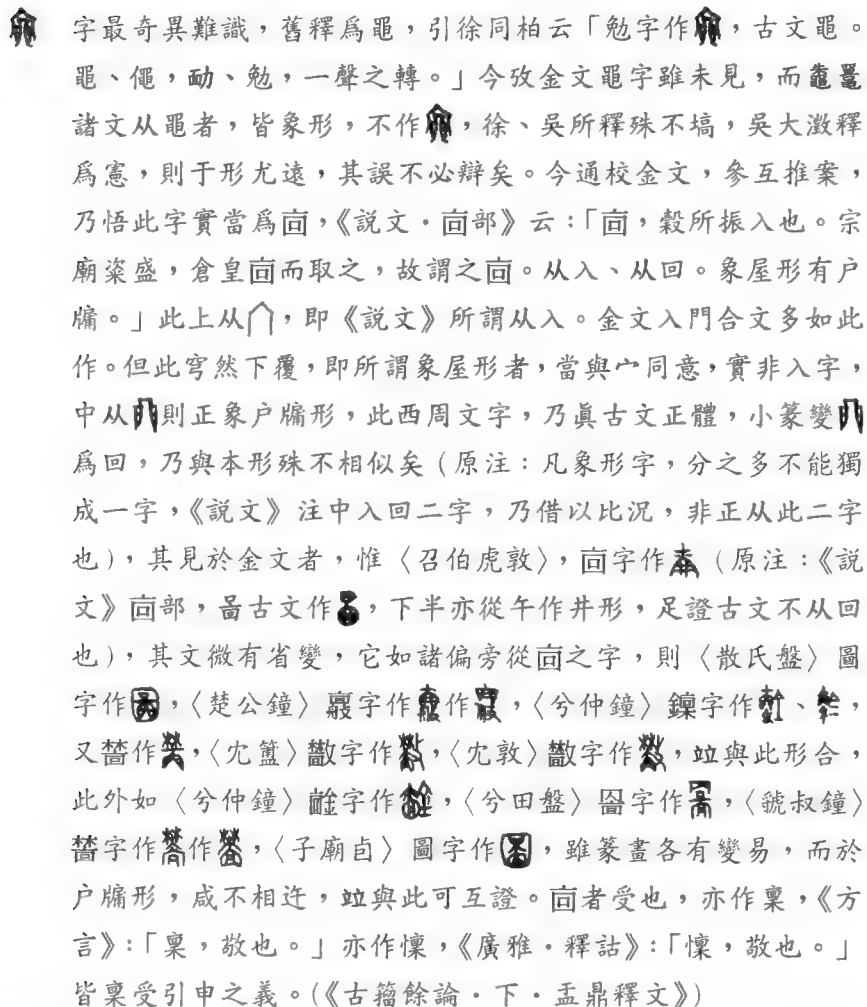 字最奇異難識，舊釋爲黽，引徐同柏云「勉字作，古文黽。
黽、僶，勔、勉，一聲之轉。」今攷金文黽字雖未見，而鼀鼉
諸文从黽者，皆象形，不作，徐、吳所釋殊不塙，吳大澂釋
爲憲，則于形尤遠，其誤不必辯矣。今通校金文，參互推案，
乃悟此字實當爲㐭，《說文·㐭部》云：「㐭，穀所振入也。宗
廟粢盛，倉皇㐭而取之，故謂之㐭。从入、从回。象屋形有户
牖。」此上从，即《說文》所謂从入。金文入門合文多如此
作。但此穹然下覆，即所謂象屋形者，當與宀同意，實非入字，
中从則正象户牖形，此西周文字，乃眞古文正體，小篆變
爲回，乃與本形殊不相似矣（原注：凡象形字，分之多不能獨
成一字，《說文》注中入回二字，乃借以比況，非正从此二字
也），其見於金文者，惟〈召伯虎敦〉，㐭字作（原注：《說
文》㐭部，啚古文作，下半亦從午作井形，足證古文不从回
也），其文微有省變，它如諸偏旁從㐭之字，則〈散氏盤〉圖
字作，〈楚公鐘〉字作作，〈兮仲鐘〉字作、，
又作，〈冘簠〉字作，〈冘敦〉字作，竝與此形合，
此外如〈兮仲鐘〉字作，〈兮田盤〉字作，〈虢叔鐘〉
字作作，〈子廟卣〉圖字作，雖篆畫各有變易，而於
户牖形，咸不相迕，竝與此可互證。㐭者受也，亦作稟，《方
言》：「稟，敬也。」亦作懍，《廣雅·釋詁》：「懍，敬也。」
皆稟受引申之義。(《古籀餘論·下·盂鼎釋文》)